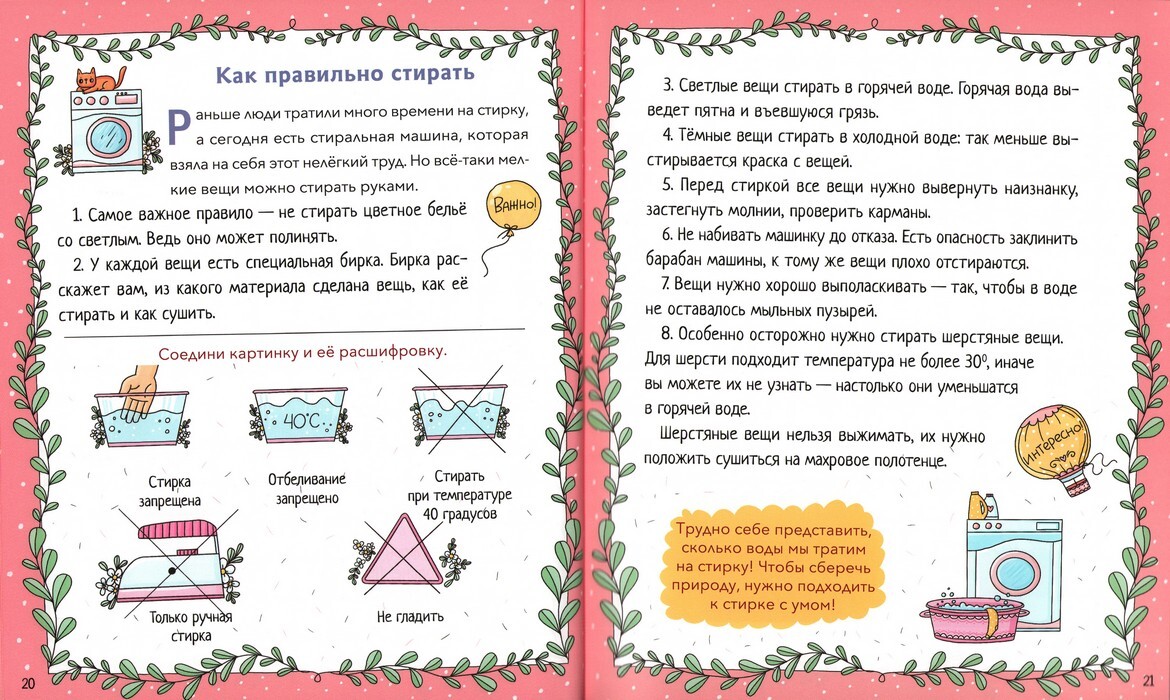 Как правильно стирать
Раньше люди тратили много времени на стирку,
а сегодня есть стиральная машина, которая
взяла на себя этот нелёгкий труд. Но всё-таки мел-
кие вещи можно стирать руками.
1. Самое важное правило — не стирать цветное бельё
со светлым. Ведь оно может полинять.
Важно!
2. У каждой вещи есть специальная бирка. Бирка рас-
скажет вам, из какого материала сделана вещь, как её
стирать и как сушить.
Соедини картинку и её расшифровку.
40°C
Стирка
запрещена
Отбеливание
запрещено
Стирать
при температуре
40 градусов
Только ручная
стирка
Не гладить
20
3. Светлые вещи стирать в горячей воде. Горячая вода вы-
ведет пятна и въевшуюся грязь.
4. Тёмные вещи стирать в холодной воде: так меньше вы-
стирывается краска с вещей.
5. Перед стиркой все вещи нужно вывернуть наизнанку,
застегнуть молнии, проверить карманы.
6. Не набивать машинку до отказа. Есть опасность заклинить
барабан машины, к тому же вещи плохо отстираются.
7. Вещи нужно хорошо выполаскивать — так, чтобы в воде
не оставалось мыльных пузырей.
8. Особенно осторожно нужно стирать шерстяные вещи.
Для шерсти подходит температура не более 30⁰, иначе
вы можете их не узнать — настолько они уменьшатся
в горячей воде.
Шерстяные вещи нельзя выжимать, их нужно
положить сушиться на махровое полотенце.
Интересно!
Трудно себе представить,
сколько воды мы тратим
на стирку! Чтобы сберечь
природу, нужно подходить
к стирке с умом!
21